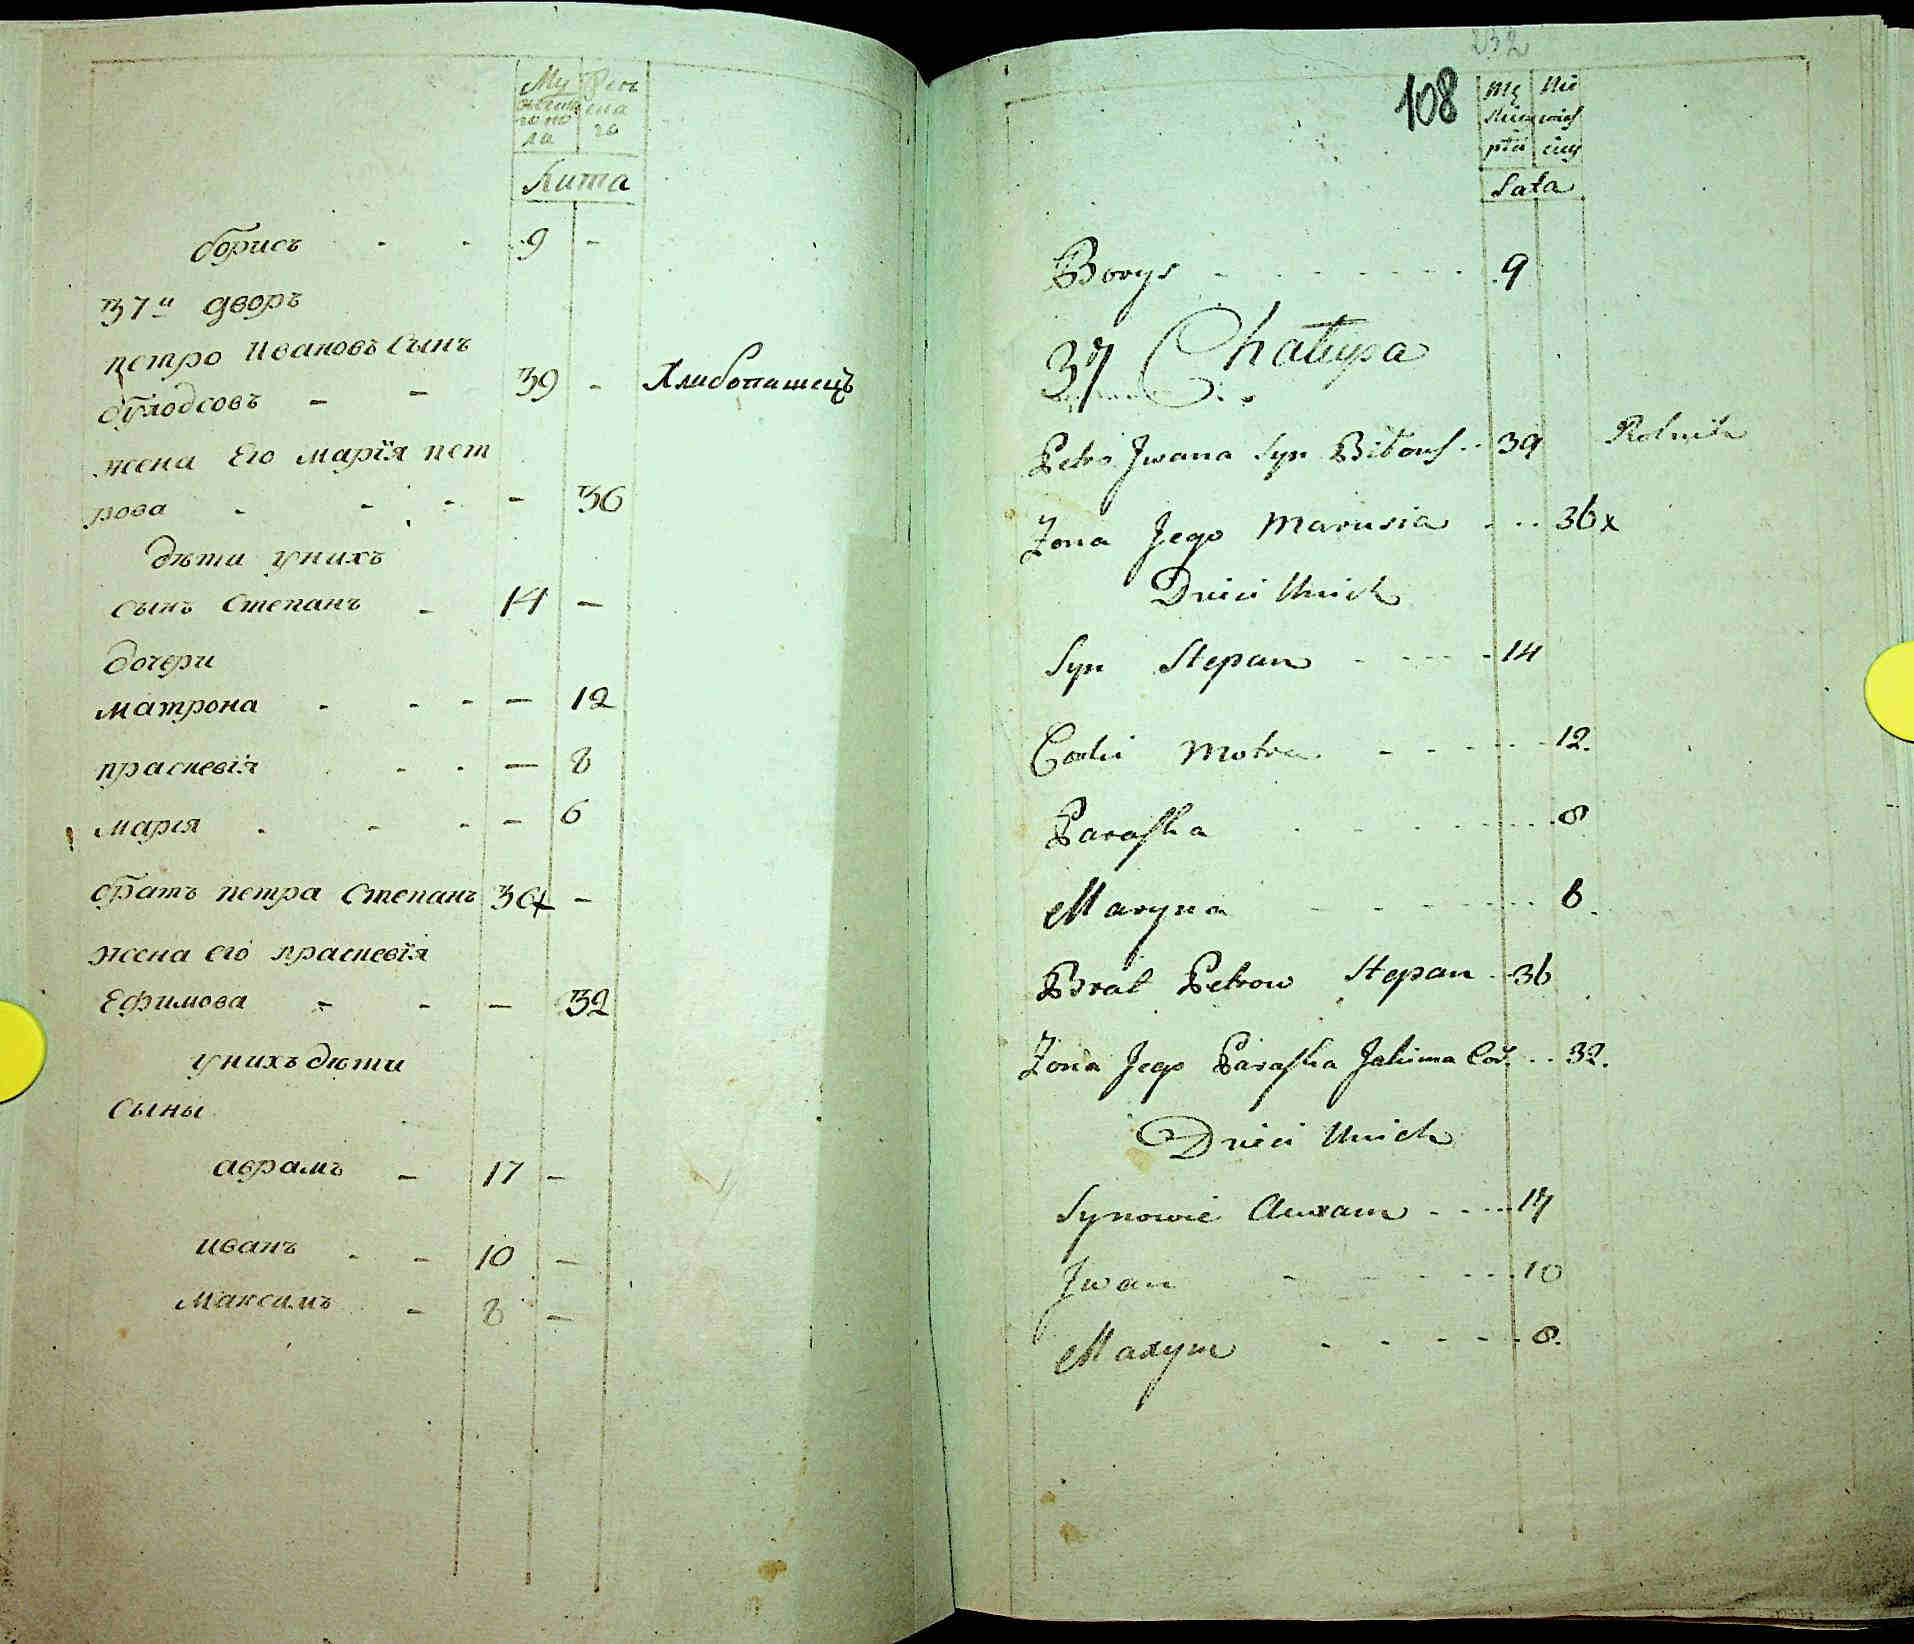 Му Жен
жеска ска
го по го
ла
Лита
борисъ - - 9 -
37й дворъ
петро Ивановъ Сынъ
- - 39 - Хлибопашецъ
жена Его марія пет
рова - - - - 36
дѣти унихъ
сынъ Степанъ - 14 -
дочери
матрона - - - - 12
праскевія - - - 8
марія - - - - 6
братъ петра Степанъ 36x -
жена его праскевія
Ефимова - - - 32
унихъ дѣти
сыны
аврамъ - 17 -
иванъ - - 10 -
Максимъ - 8 -
232
108
Lata
Borys - - - - - - - 9
37 Chałupa
Petro Jwana Syn - 39 Rolnik
Zona Jego Marusia - - - 36x
Dzieci Unich
Syn Stepan - - - - 14
Corki Motra - - - - - 12.
Paraska - - - - - - 8
Maryna - - - - - - 6.
Brat Petrow Stepan - 36
Zona Jego Paraska Jakima Cor. - - 32.
Dzieci Unich
Synowie Awram - - - - 17
Jwan - - - - - 10
Maxym - - - - - 8.